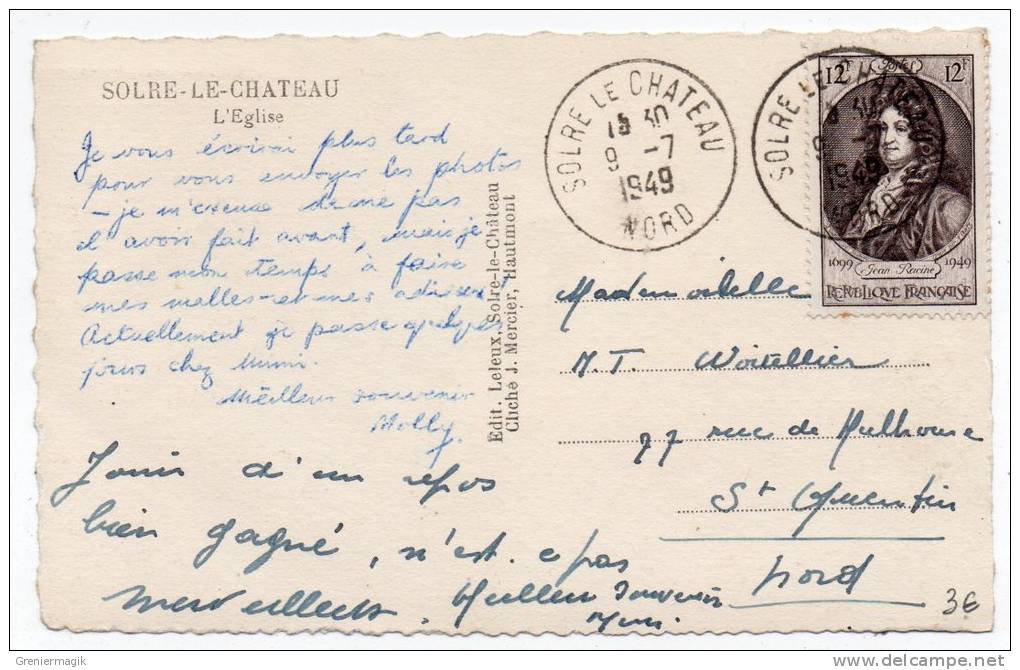 SOLRE-LE-CHATEAU
L'Eglise
Je vous écrirai plus tard
pour vous envoyer les photos
- je m'excuse de ne pas
avoir fait avant, mais je
passe mon temps à faire
mes malles et mes adieux
Actuellement je passe quelques
jours chez Mimi.
Meilleur souvenir
Molly.
Jouir d'un repos
bien gagné, n'est-ce pas
merveilleux. Meilleur Souvenir
Edit. Leleux, Solre-le-Château
Cliché J. Mercier, Hautmont
SOLRE LE CHATEAU
30
9 -7
1949
NORD
SOLRE LE CHATEAU
1949
NORD
12F Postes 12F
1699 Jean Racine 1949
REPUBLIQUE FRANÇAISE
Mademoiselle
M.T. Woitellier
77 rue de Mulhouse
St Quentin
Nord
3€
Greniermagik
www.delcampe.net